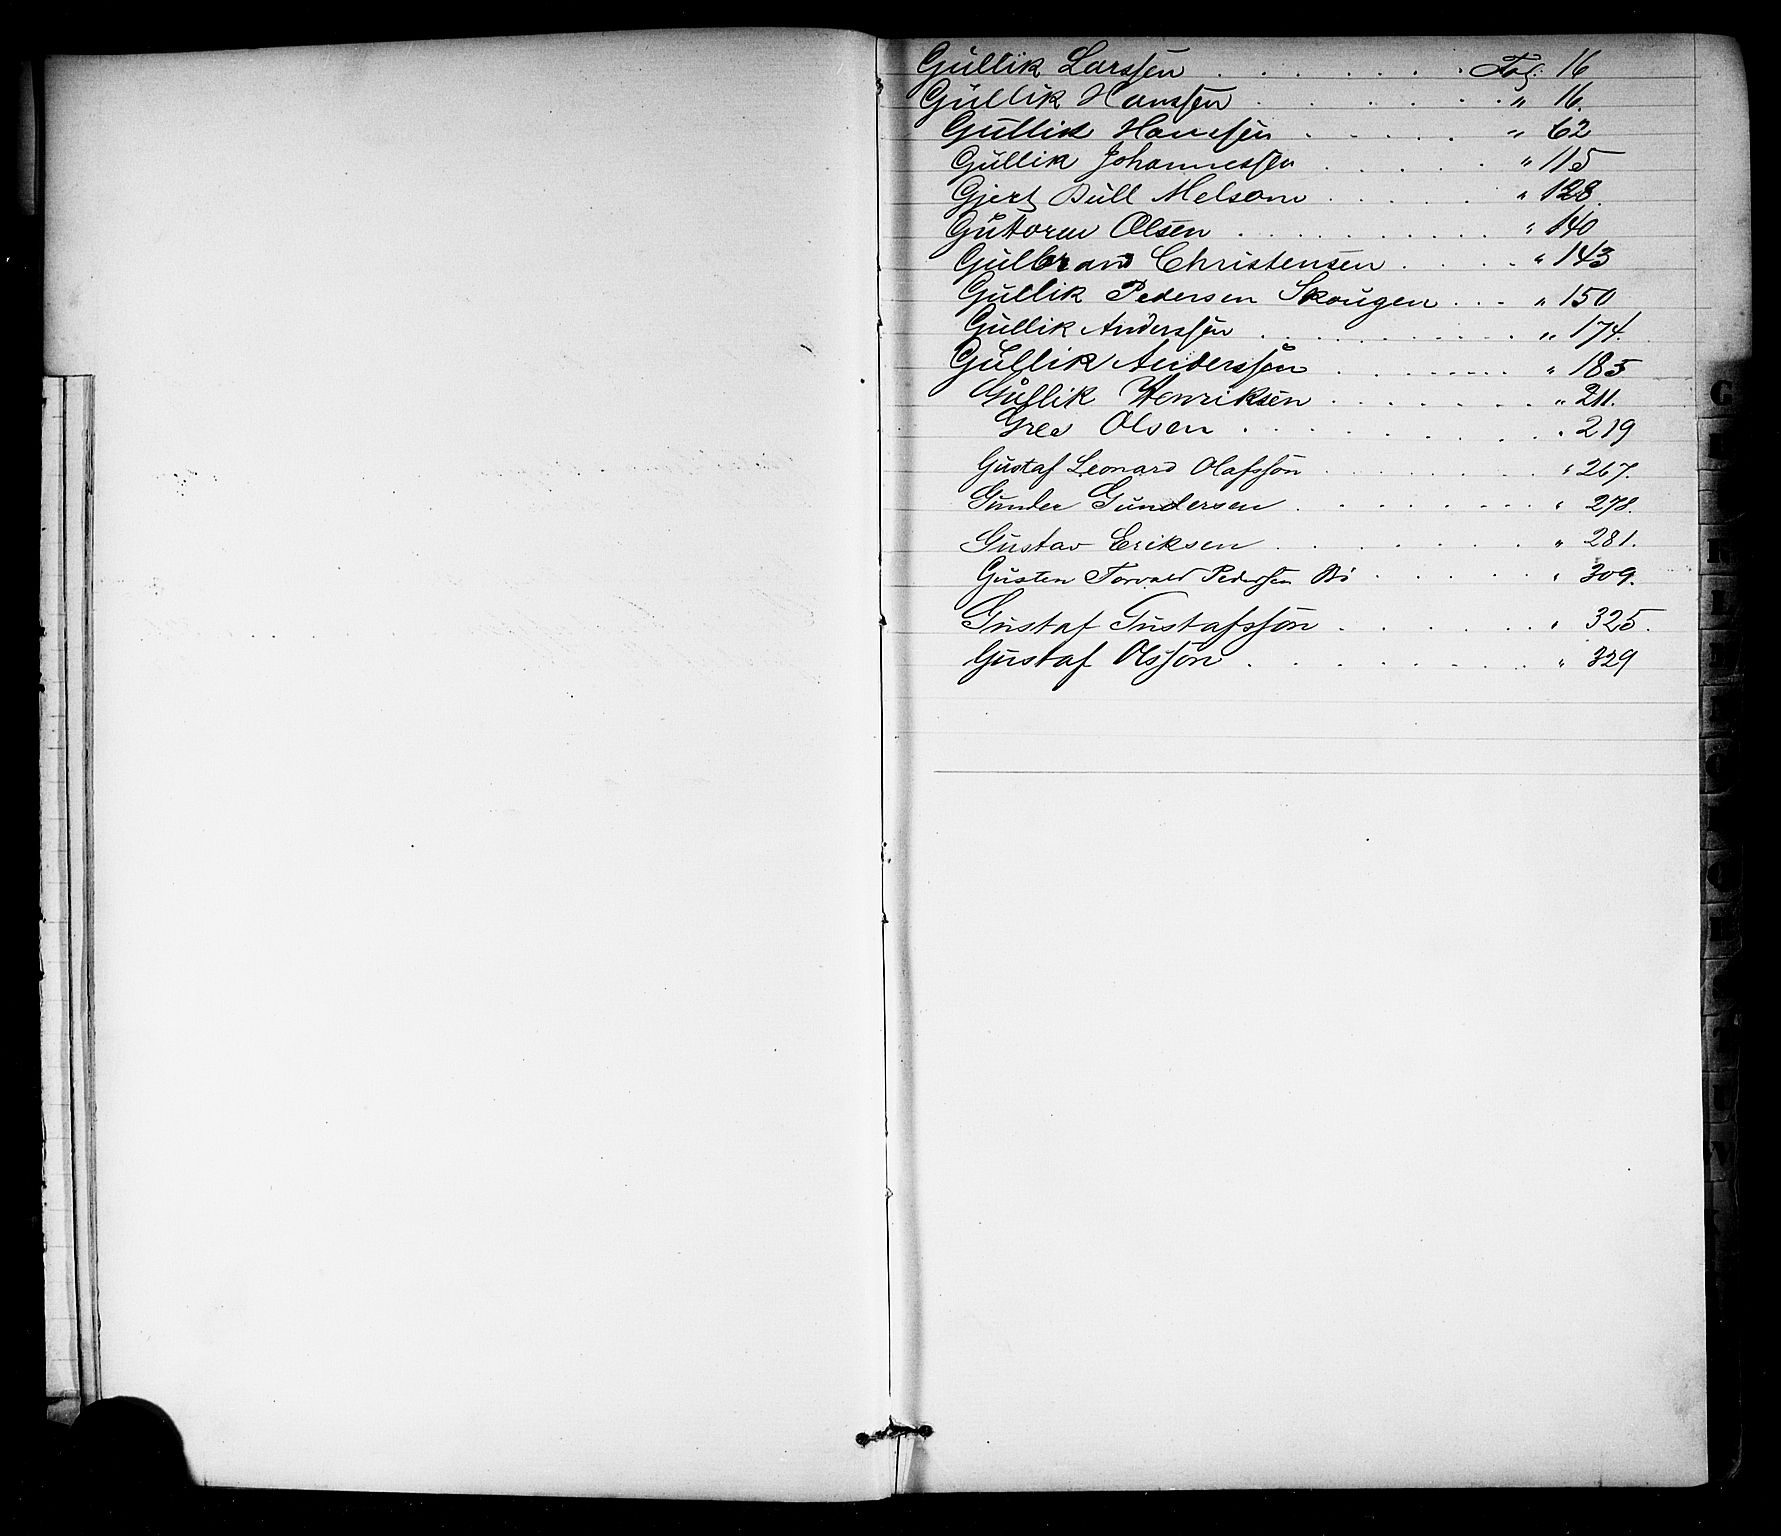 Gullik Larssen . . . . . . . Fol: 16
Gullik Hanssen . . . . . . " 16.
Gullik Hanssen . . . . . " 62
Gullik Johannessen . . . . . " 115
Gjert Bull Melsom . . . . . " 128.
Guttorm Olsen . . . . . . . . . . " 140
Gulbrand Christensen . . . . . " 143
Gullik Pedersen Skougen . . . " 150
Gullik Anderssen . . . . . . . . . . " 174.
Gullik Anderssen . . . . . . . . " 185
Gullik Henriksen . . . . . . . " 211.
Olsen . . . . . . . . " 219
Gustaf Leonard Olafsson . . . . . . " 267.
Gunder Gundersen . . . . . . . . " 278.
Gustav Eriksen . . . . . . . " 281.
Gusten Torvald Pedersen Bö . . . . . " 309.
Gustaf Gustafsson . . . . . . " 325.
Gustaf Olsson . . . . . . . . " 329
G